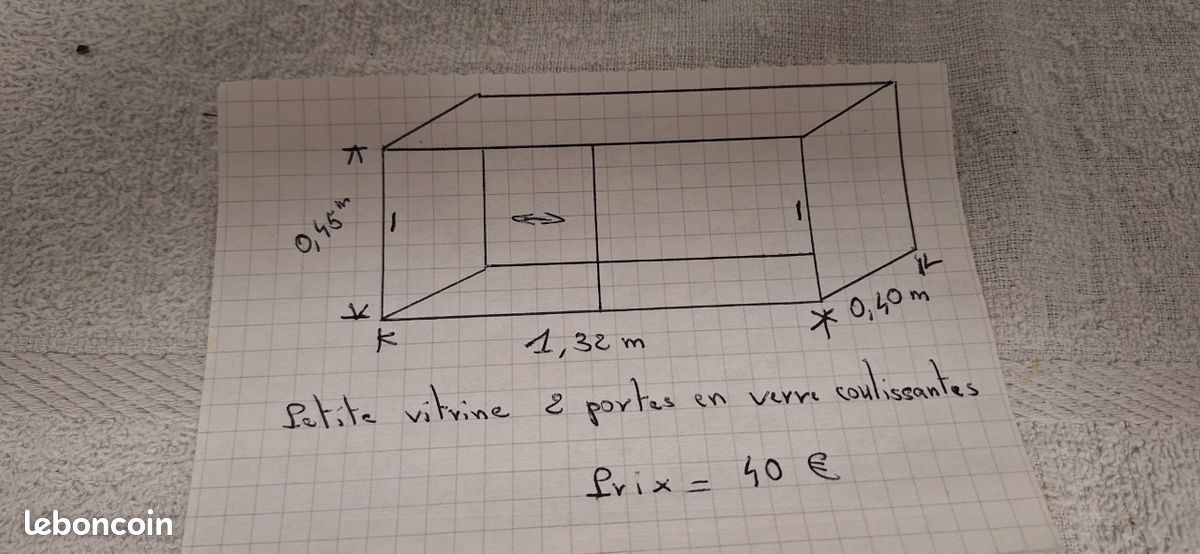 0,45m
1,32 m
0,40 m
Petite vitrine 2 portes en verre coulissantes
Prix = 40 €
leboncoin